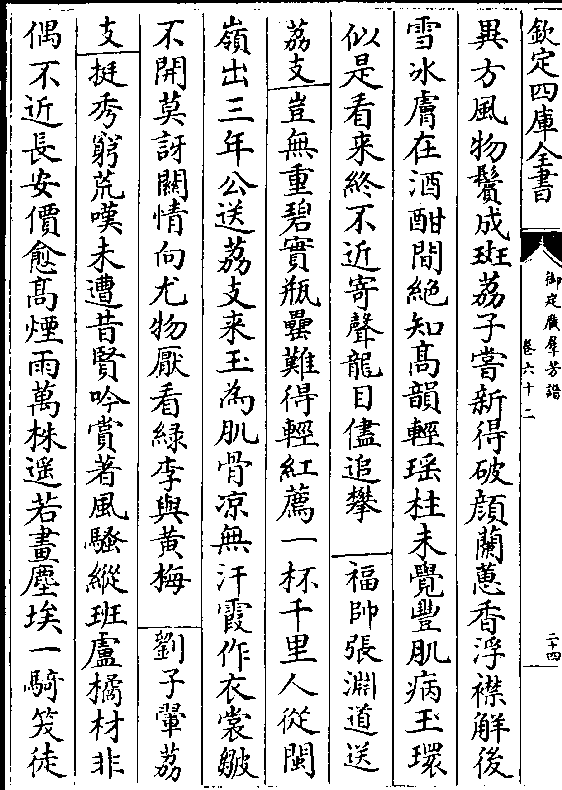 欽定四庫全書
御定廣羣芳譜
卷六十二
二十四
異方風物鬢成斑荔子嘗新得破顔蘭蕙香浮襟解後
雪冰膚在酒酣間絶知髙韻輕瑶柱未覺豐肌病玉環
似是看来終不近寄聲龍目儘追攀 福帥張淵道送
荔支豈無重碧實瓶罍難得輕紅薦一杯千里人從閩
嶺出三年公送荔支来玉為肌骨凉無汗霞作衣裳皺
不開莫訝關情向尤物厭看緑李與黄梅 劉子翬荔
支挺秀窮荒嘆未遭昔賢吟賞著風騷縱班盧橘材非
偶不近長安價愈髙煙雨萬株遥若畫塵埃一騎笑徒